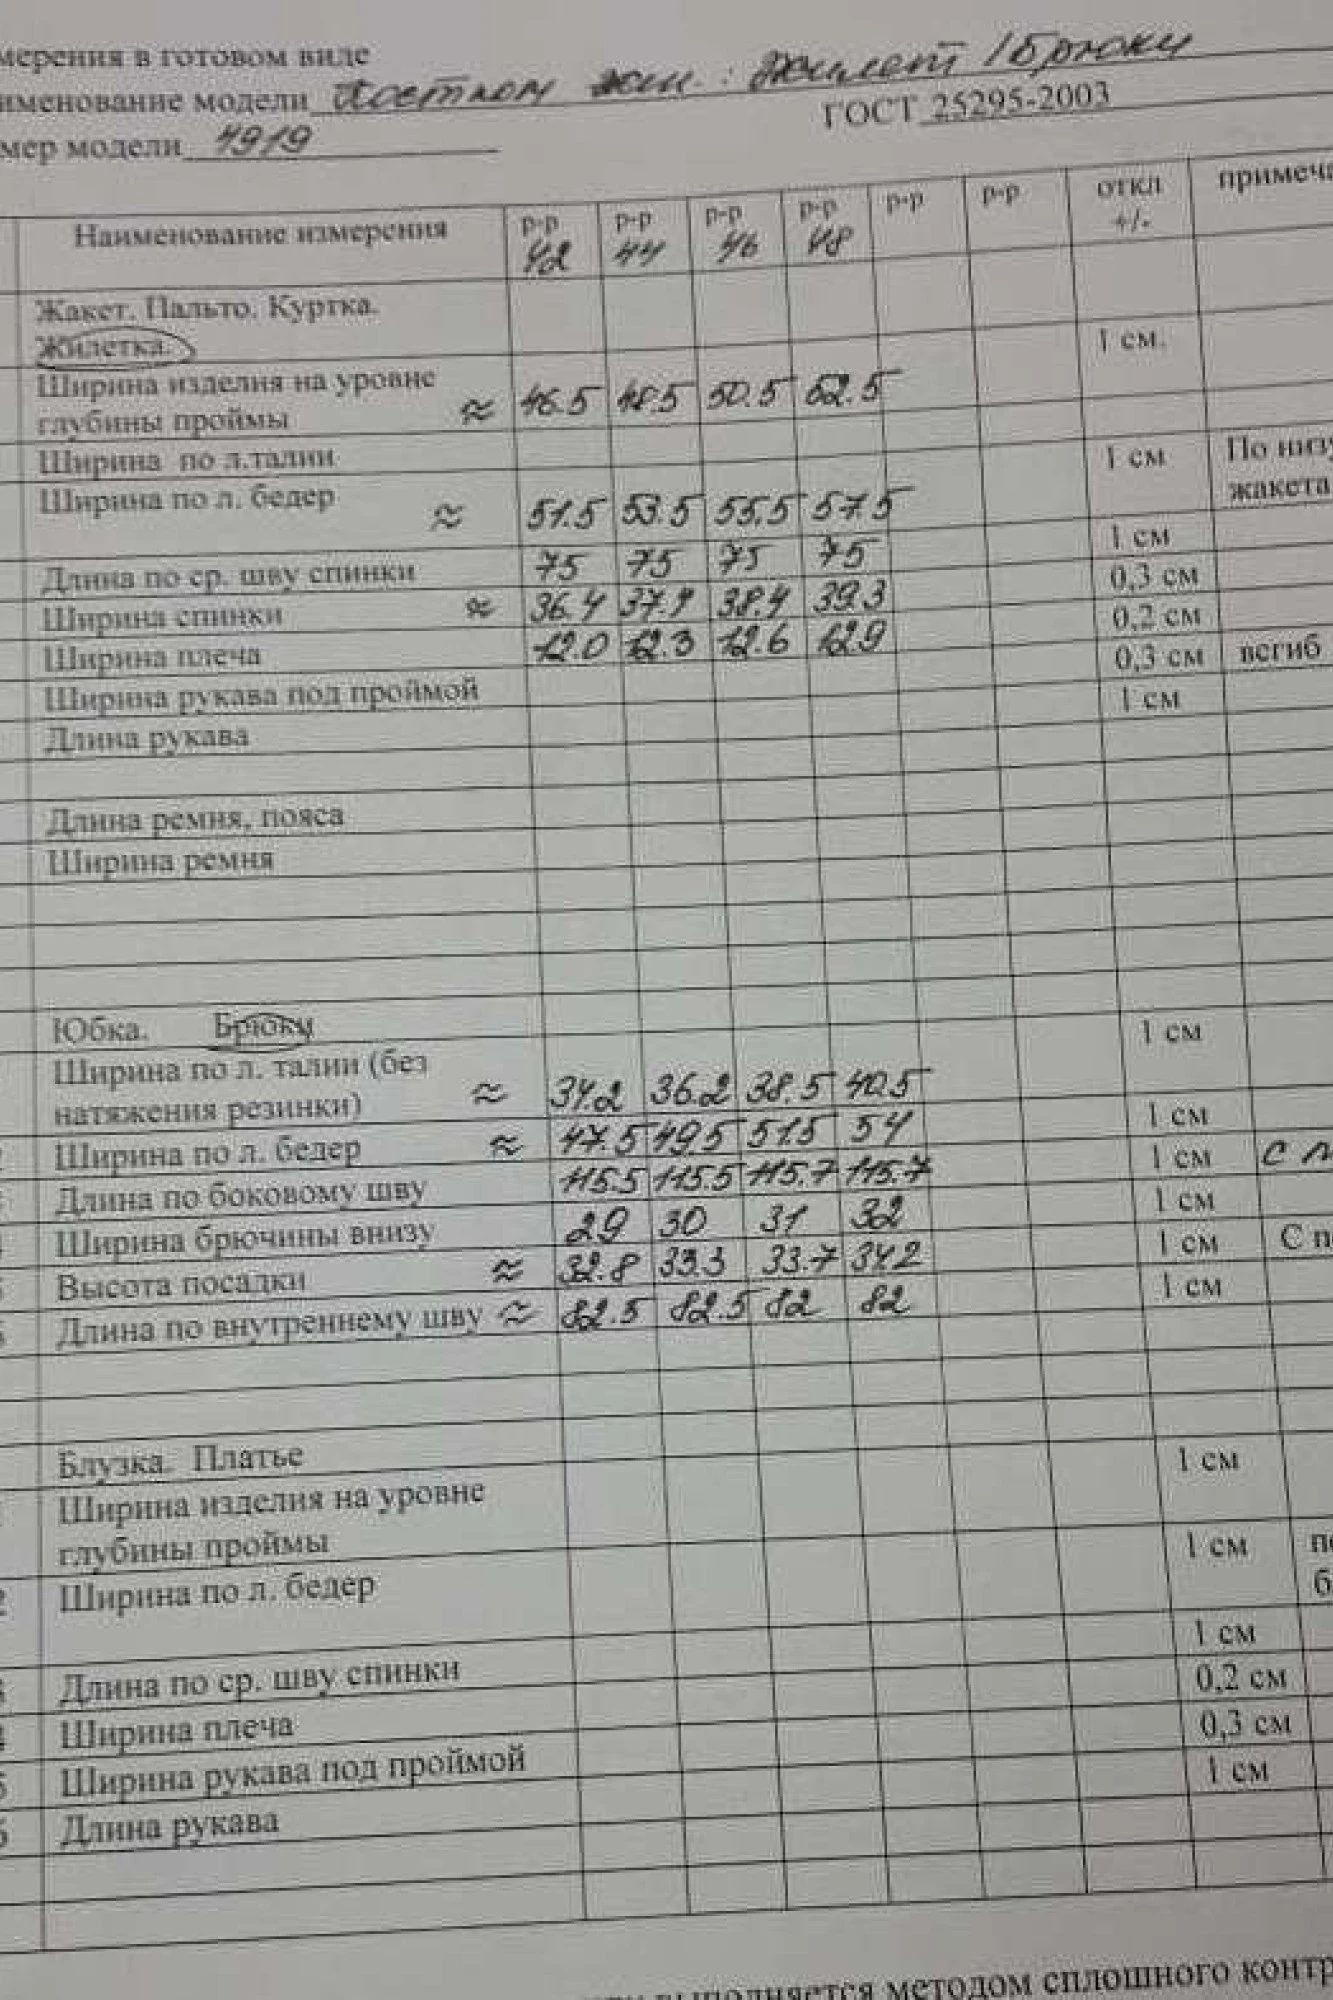 мерения в готовом виде
именование модели Костюм жен. : Жилет / Брюки
ГОСТ 25295-2003
мер модели 4919
Наименование измерения р-р 42 р-р 44 р-р 46 р-р 48 р-р р-р откл +/- примеча
Жакет. Пальто. Куртка.
Жилетка. 1 см.
Ширина изделия на уровне
глубины проймы ≈ 46.5 48.5 50.5 52.5
Ширина по л.талии 1 см По низу
Ширина по л. бедер ≈ 51.5 53.5 55.5 57.5 жакета
Длина по ср. шву спинки 75 75 75 75 1 см
Ширина спинки ≈ 36.4 37.4 38.4 39.3 0,3 см
Ширина плеча 12.0 12.3 12.6 12.9 0,2 см
Ширина рукава под проймой 0,3 см всгиб
Длина рукава 1 см
Длина ремня, пояса
Ширина ремня
Юбка. Брюки
Ширина по л. талии (без 1 см
натяжения резинки) ≈ 34.2 36.2 38.5 40.5
Ширина по л. бедер ≈ 47.5 49.5 51.5 54 1 см
Длина по боковому шву 115.5 115.5 115.7 115.7 1 см с
Ширина брючины внизу 29 30 31 32 1 см
Высота посадки ≈ 32.8 33.3 33.7 34.2 1 см С п
Длина по внутреннему шву ≈ 82.5 82.5 82 82 1 см
Блузка. Платье
Ширина изделия на уровне 1 см
глубины проймы
2 Ширина по л. бедер 1 см
Длина по ср. шву спинки 1 см
Ширина плеча 0,2 см
Ширина рукава под проймой 0,3 см
Длина рукава 1 см
выполняется методом сплошного контр